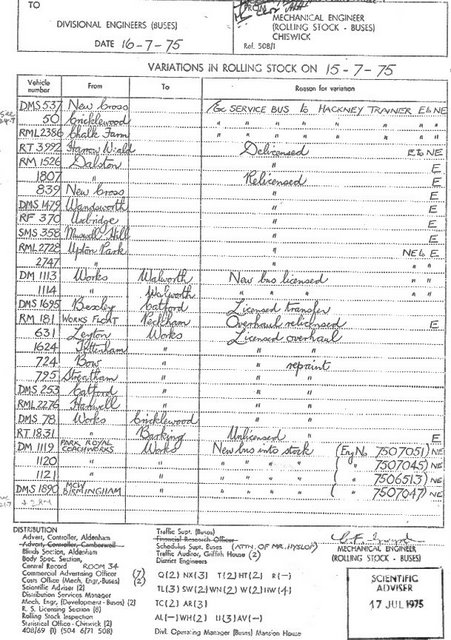 TO
FROM
DIVISIONAL ENGINEERS (BUSES)
MECHANICAL ENGINEER
(ROLLING STOCK - BUSES)
CHISWICK
DATE 16-7-75
Ref. 508/1
VARIATIONS IN ROLLING STOCK ON 15-7-75
Vehicle number From To Reason for variation
DMS 537 New Cross /Gc SERVICE BUS to HACKNEY TRAINER E to NE
50 Cricklewood " " " " " "
RML 2386 Chalk Farm " " " " " "
RT 3992 Harrow Weald Delicensed E to NE
RM 1526 Dalston " E
1807 " Relicensed E
839 New Cross " E
DMS 1479 Wandsworth " E
RF 370 Uxbridge " E
SMS 358 Muswell Hill " E
RML 2728 Upton Park " NE to E
2747 " " " "
DM 1113 Works Walworth New bus licensed " "
1114 " Walworth " " " "
DMS 1695 Bexley Catford Licensed transfer
RM 181 WORKS FLOAT Peckham Overhaul relicensed E
631 Leyton Works Licensed overhaul
1624 Tottenham " " "
724 Bow " " repaint
795 Streatham " " "
DMS 253 Catford " " "
RML 2276 Hanwell " " "
DMS 78 Works Cricklewood " "
RT 1831 " Barking Unlicensed " E
DM 1119 PARK ROYAL COACHWORKS Works New bus into stock (Eng No 7507051) NE
1120 " " " " " ( " 7507045) NE
1121 " " " " " ( " 7506513) NE
DMS 1890 MCW BIRMINGHAM " " " " ( " 7507047) NE
DISTRIBUTION
Advert. Controller, Aldenham
Advert. Controller, Camberwell
Blinds Section, Aldenham
Body Spec. Section,
Central Record ROOM 34
Commercial Advertising Officer (7)
Costs Office (Mech. Engr-Buses) (2)
Scientific Adviser (2)
Distribution Services Manager
Mech. Engr. (Development - Buses) (2)
R. S. Licensing Section (6)
Rolling Stock Inspection
Statistical Office - Chiswick (2)
408/69 (1) (504 6/71 508)
Traffic Supt. (Buses)
Financial Research Officer
Schedules Supt. Buses (ATTN. OF MR. HYSLOP)
Traffic Auditor, Griffith House (2)
District Engineers
Q(2) NX(3) T(2) HT(2) R(-)
TL(3) SW(2) WN(2) W(2) HW(4)
TC(2) AR(3)
AL(-) WH(2) U(3) AV(-)
Divl. Operating Manager (Buses) Mansion House
MECHANICAL ENGINEER
(ROLLING STOCK - BUSES)
SCIENTIFIC
ADVISER
17 JUL 1975